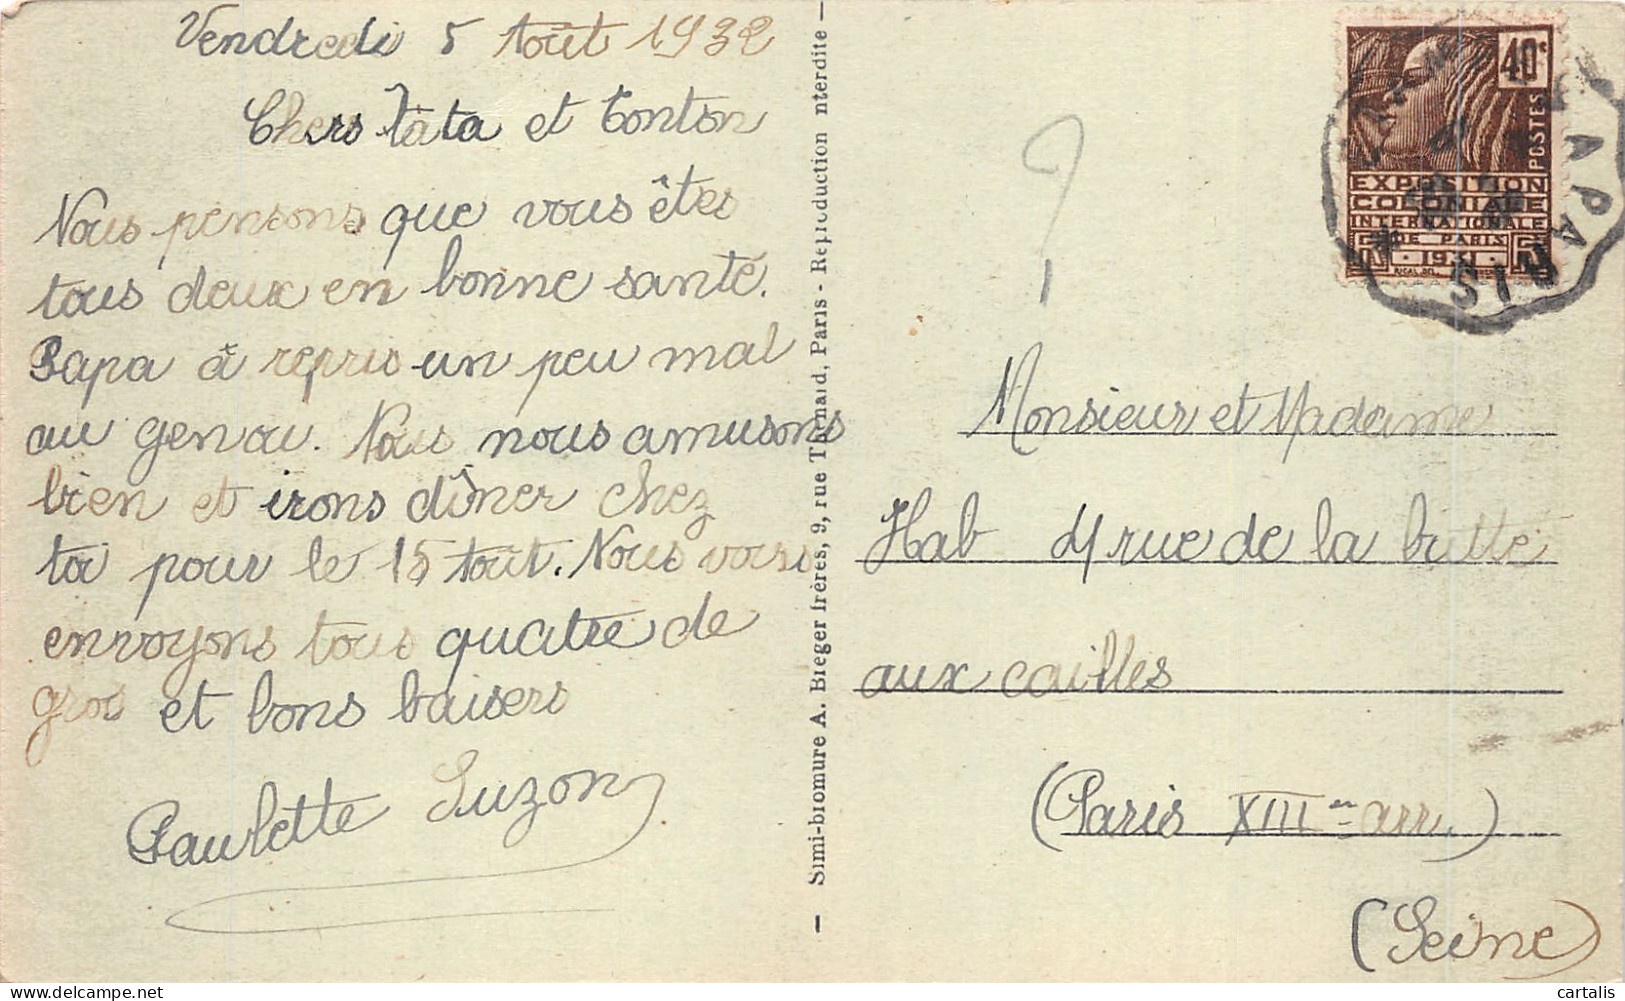 Vendredi 5 Août 1932
Chers Tata et Tonton
Nous pensons que vous êtes
tous deux en bonne santé.
Papa à repris un peu mal
au genou. Nous nous amusons
bien et irons dîner chez
toi pour le 15 Août. Nous vous
envoyons tous quatre de
gros et bons baisers
Paulette Suzon
Simi-bromure A. Breger frères, 9, rue Thénard, Paris - Reproduction interdite
?
40c
POSTES
EXPOSITION
COLONIALE
INTERNATIONALE
DE PARIS
1931
A PARIS
Monsieur et Madame
Hab 4 rue de la butte
aux cailles
(Paris XIIIen arr.)
(Seine)
cartalis